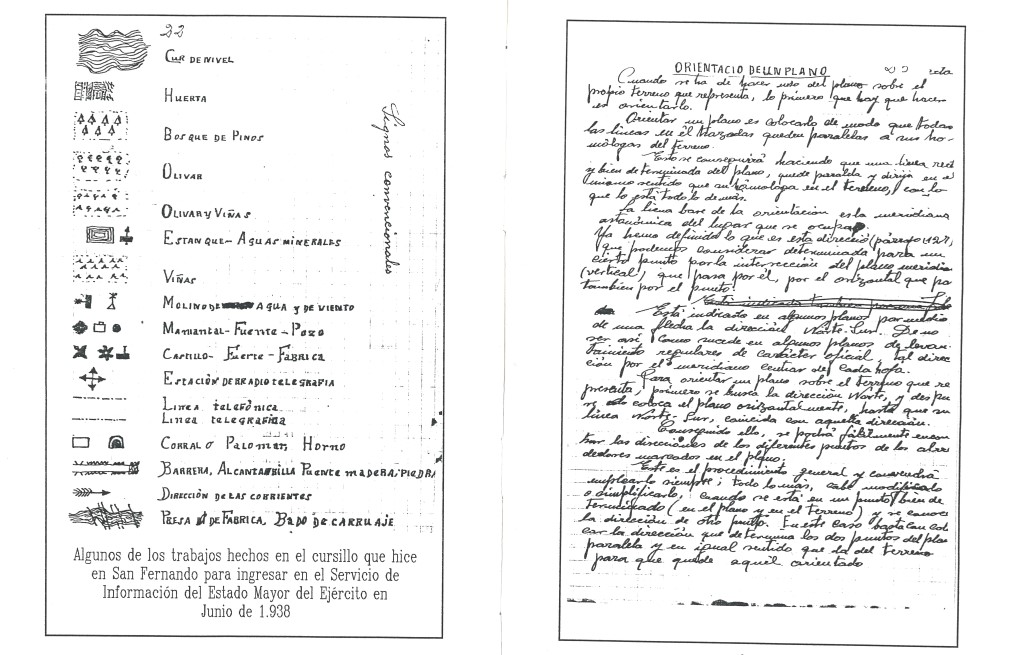 22
CUR DE NIVEL
HUERTA
BOSQUE DE PINOS
OLIVAR
OLIVAR Y VIÑAS
ESTANQUE - AGUAS MINERALES
VIÑAS
MOLINO DE AGUA Y DE VIENTO
MANANTAL - FUENTE - POZO
CASTILLO - FUERTE - FABRICA
ESTACIÓN DE RADIO TELEGRAFIA
LINEA TELEFÓNICA
LINEA TELEGRAFICA
CORRAL O PALOMAR, HORNO
BARRERA, ALCANTARILLA PUENTE MADERA, PIEDRA
DIRECCIÓN DE LAS CORRIENTES
PRESA DE FABRICA, BADO DE CARRUAJE
Signos convencionales
Algunos de los trabajos hechos en el cursillo que hice
en San Fernando para ingresar en el Servicio de
Información del Estado Mayor del Ejército en
Junio de 1.938
ORIENTACIO DE UN PLANO
Cuando se ha de hacer uso del plano sobre el
propio terreno que representa, lo primero que hay que hacer
es orientarlo.
Orientar un plano es colocarlo de modo que todas
las lineas en él trazadas queden paralelas a sus ho-
mólogas del terreno.
Esto se conseguirá haciendo que una linea rect
y bien determinada del plano, quede paralela y dirija en e
mismo sentido que su homologa en el terreno, con lo
que lo está todo lo demás.
La linea base de la orientación es la meridiana
astronómica del lugar que se ocupa
Ya hemo definido lo que es esta direcció (párrafo 127,
que podemos considerar determinada para un
cierto punto por la intersección del plano meridia
(vertical) que pasa por él, por el orizontal que pa
tambien por el punto.
Está indicado en algunos planos por medio
de una flecha la dirección Norte-Sur. De no
ser así, como sucede en algunos planos de levan-
tamiento regulares de carácter oficial, tal direc
ción por el meridiano central de cada hoja.
Para orientar un plano sobre el terreno que re
presenta, primero se busca la dirección Norte, y despu
es coloca el plano orizontalmente, hasta que su
linea Norte-Sur, coincida con aquella dirección.
Conseguido ello, se podrá fácilmente encon
trar las direcciones de los diferentes puntos de los alre
dedores marcados en el plano.
Este es el procedimiento general y convendrá
emplearlo siempre; todo lo más, cabe modificarlo
o simplificarlo, cuando se está en un punto bien de
terminado (en el plano y en el terreno) y se conoce
la dirección de otro punto. En este caso basta con colo
car la dirección que determina los dos puntos del plan
paralela y en igual sentido que la del terreno
para que quede aquél orientado